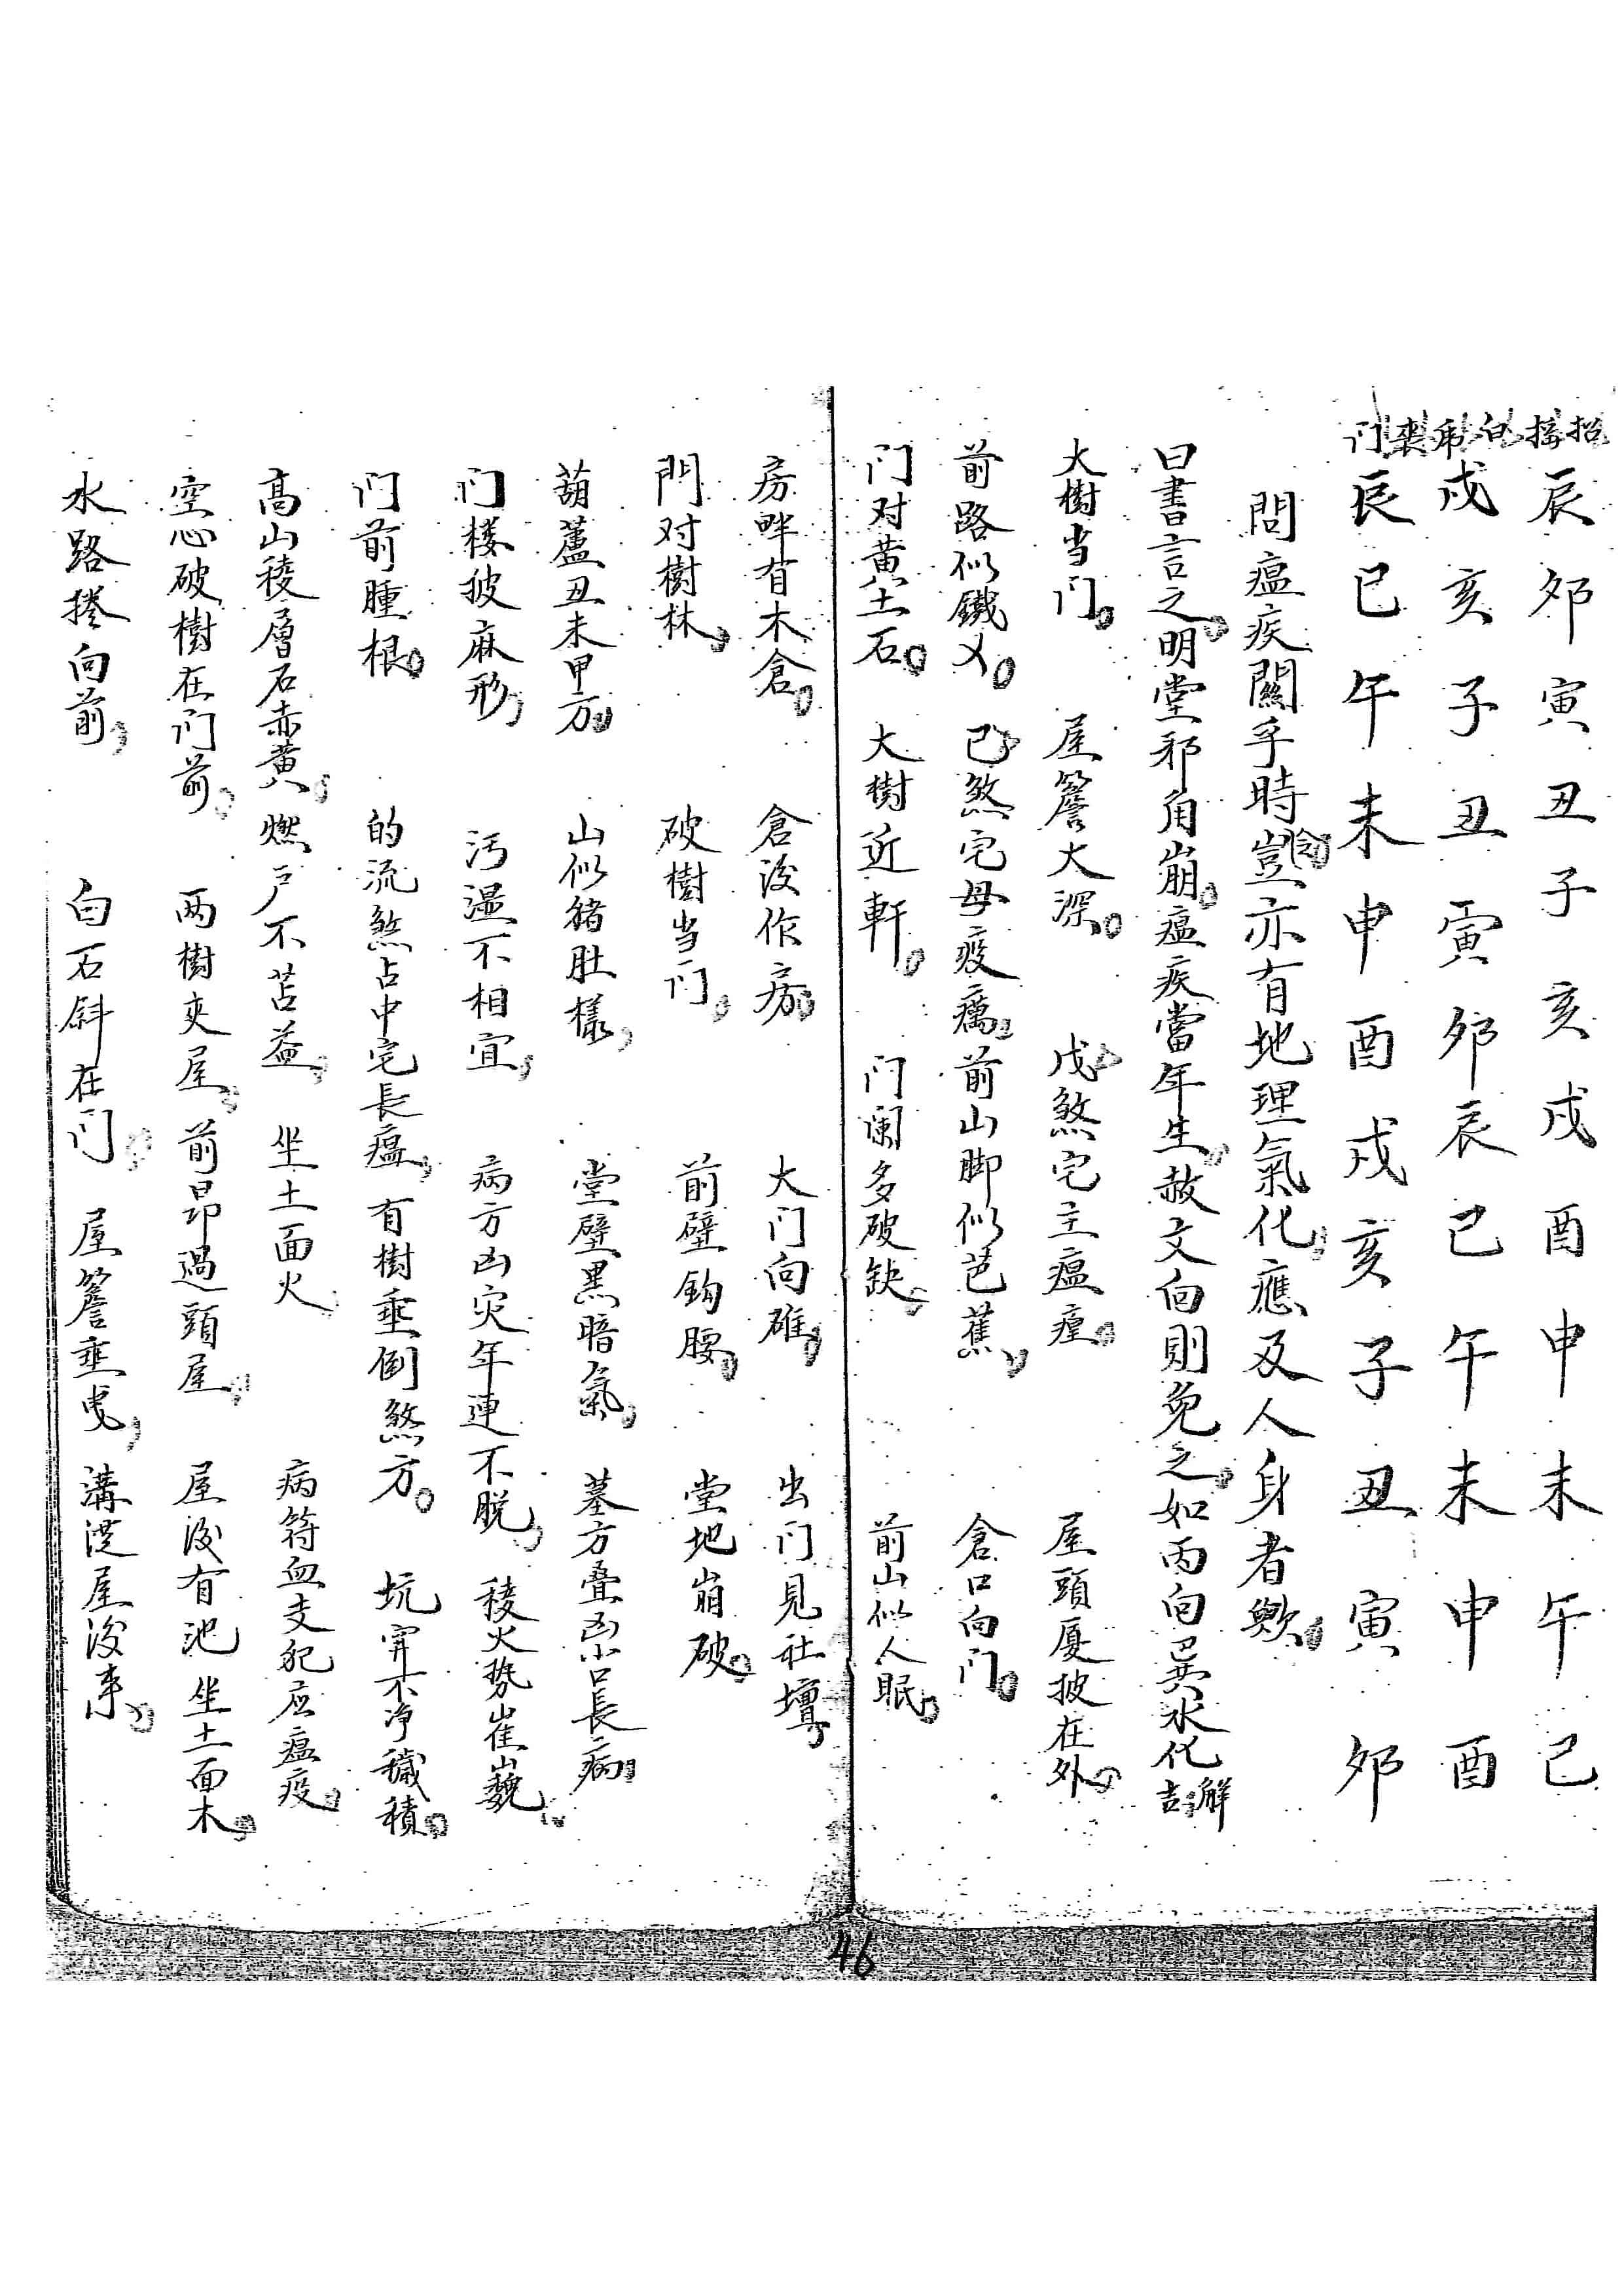 招揍 辰夘寅丑子亥戌酉申未午巳
白吊 戍亥子丑寅夘辰巳午未申酉
丧门 辰巳午未申酉戌亥子丑寅夘
問瘟疾關乎時豈亦有地理氣化應及人身者歟
曰書言之明堂邪角崩瘟疾當年生赦文向則免之如丙向巽水化解吉
大樹当门 屋簷大深 戊煞宅主瘟瘟 屋頭厦披在外
前路似鐵乂 己煞宅母疫癘 前山脚似芭蕉 倉口向门
门对黄土石 大樹近軒 门阑多破缺 前山似人眠
房畔有木倉 倉後作房 大门向碓 出门見社壇
門对樹林 破樹当门 前壁鈎腰 堂地崩破
葫蘆丑未甲方 山似猪肚樣 堂壁黑暗氣 墓方叠凶小口長病
门楼披麻形 污湿不相宜 病方凶灾年連不脱 稜火势崔巍
门前腫根 的流煞占中宅長瘟 有樹垂倒煞方 坑穽不净穢積
高山稜層石赤黄 燃户不苫益 坐土面火 病符血支犯应瘟疫
空心破樹在门前 两樹夹屋 前昂過頭屋 屋後有池 坐土面木
水路捲向前 白石斜在门 屋簷垂曳 溝从屋後来